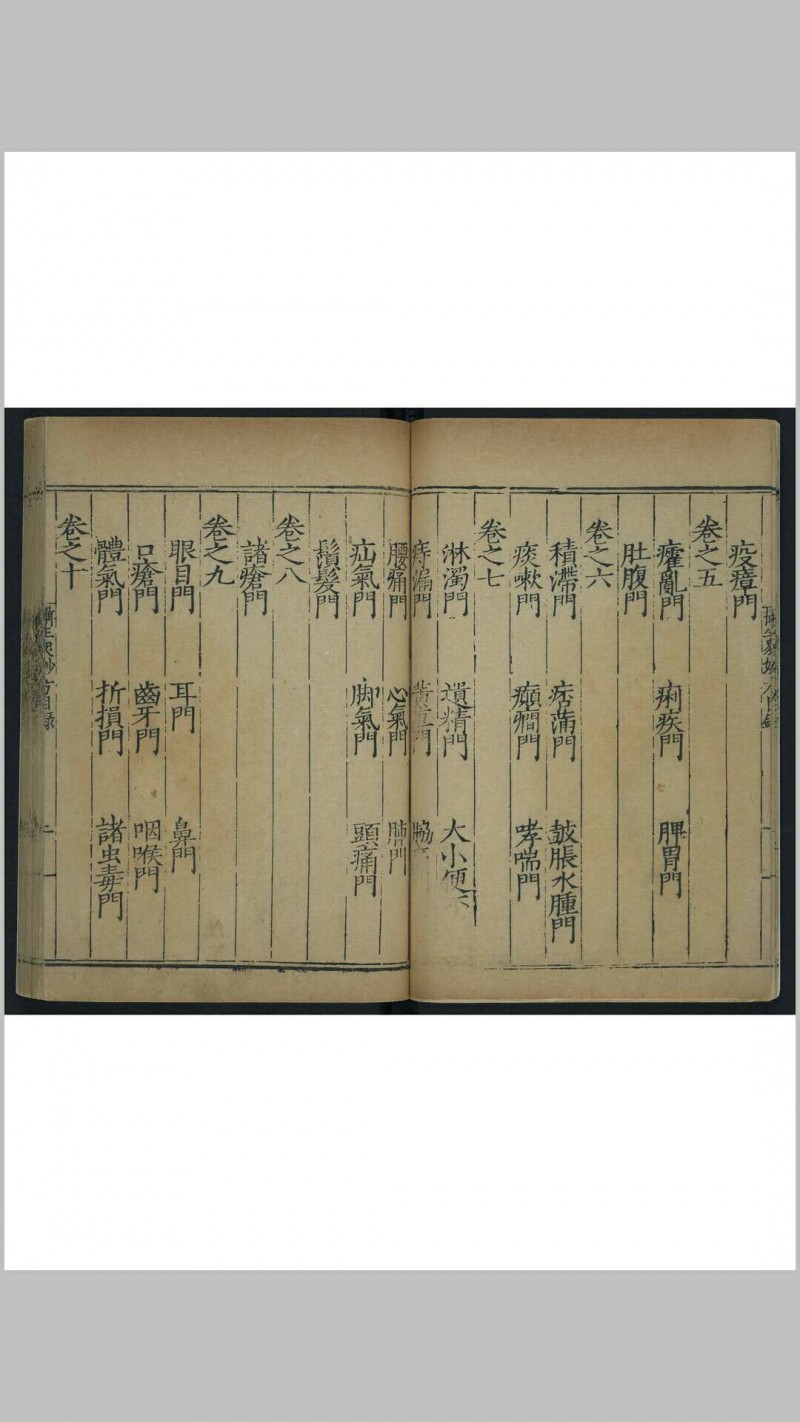 疫瘴門
卷之五
癨亂門 痢疾門 脾胃門
肚腹門
卷之六
積滯門 痞滿門 皷脹水腫門
痰嗽門 癲癎門 哮喘門
卷之七
淋濁門 遺精門 大小便
痔漏門 門
腰痛門 心氣門 肺門
疝氣門 脚氣門 頭痛門
鬚髮門
卷之八
諸瘡門
卷之九
眼目門 耳門 鼻門
口瘡門 齒牙門 咽喉門
體氣門 折損門 諸虫毒門
卷之十
生 方目錄 二